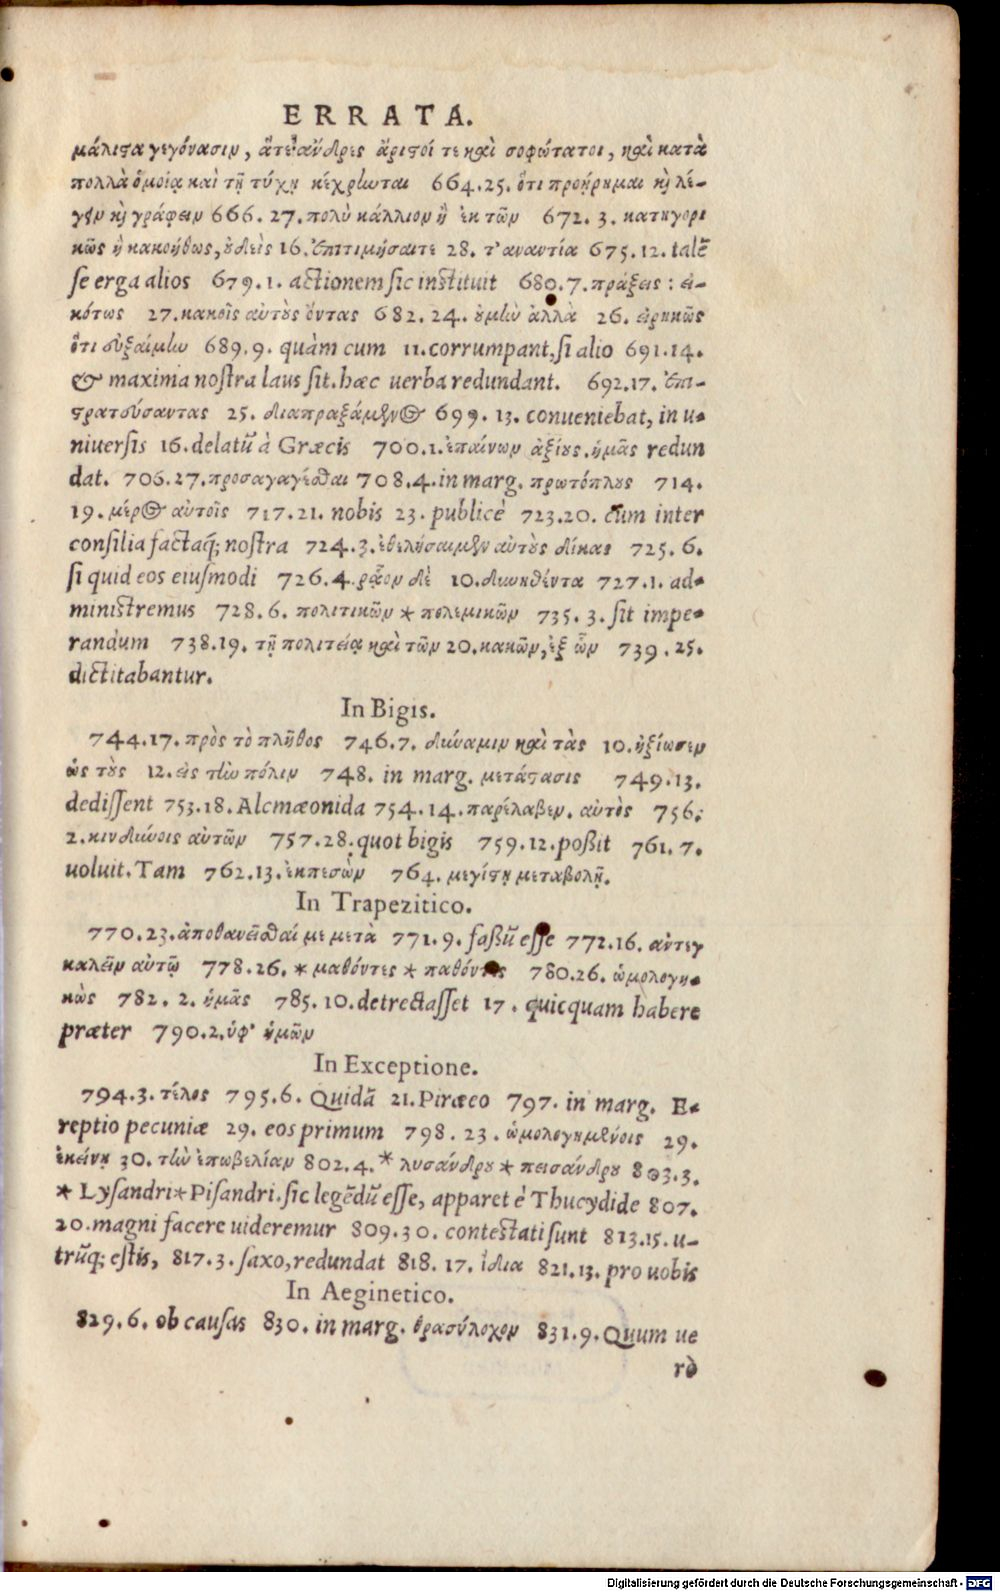 ERRATA.
μάλιϛα γεγόνασιν, ἅτε ἄνδρες ἄριϛοί τε καὶ σοφώτατοι, καὶ κατὰ
πολλὰ ὅμοιᾳ καὶ τῇ τύχῃ κέχρηνται 664.25. ὅτι προῄρημαι καὶ λέ-
γειν καὶ γράφειν 666. 27. πολὺ κάλλιον ἢ ἐκ τῶν 672. 3. κατηγορι
κῶς ἢ κακοήθως, οὐδεὶς 16. ἐπιτιμήσαιτε 28. τ' αναντία 675.12. talē
se erga alios 679.1. actionem sic instituit 680.7. πράξεις : εἰ-
κότως 27. κακοῖς αὐτοὺς ὄντας 682. 24. ουμὴν ἀλλὰ 26. εἰρηκῶς
ὅτι συξαίμην 689.9. quàm cum 11. corrumpant, si alio 691.14.
& maxima nostra laus sit. hæc uerba redundant. 692.17. ἐπι-
ϛρατούσαντας 25. διαπραξάμενος 699. 13. conueniebat, in u-
niuersis 16. delatū à Græcis 700.1. ἐπαίνων ἀξίους. ἡμᾶς redun
dat. 706.27. προσαγαγέσθαι 708.4. in marg. πρωτόπλους 714.
19. μέρος αὐτοῖς 717.21. nobis 23. publicè 723.20. cum inter
consilia factaq; nostra 724.3. ἐθελήσαιμεν αὐτοὺς δίκας 725. 6.
si quid eos eiusmodi 726.4. ῥᾷον δὲ 10. διωκηθέντα 727.1. ad-
ministremus 728.6. πολιτικῶν * πολεμικῶν 735. 3. sit impe-
randum 738.19. τῇ πολιτείᾳ καὶ τῶν 20. κακῶν, ἐξ ὧν 739.25.
dictitabantur.
In Bigis.
744.17. πρὸς τὸ πλῆθος 746.7. δύναμιν καὶ τὰς 10. ἠξίωσεν
ὡς τοὺς 12. εἰς τὴν πόλιν 748. in marg. μετάϛασις 749.13.
dedissent 753.18. Alcmæonida 754.14. παρέλαβεν. αὐτὸς 756.
2. κινδύνοις αὐτῶν 757.28. quot bigis 759.12. poßit 761.7.
uoluit. Tam 762.13. ἐκπεσὼν 764. μεγίϛῃ μεταβολῇ.
In Trapezitico.
770.23. ἀποθανεῖσθαί με μετὰ 771.9. faßū esse 772.16. αὐτεγ
καλεῖν αὐτῷ 778.26. * μαθόντες * παθόντες 780.26. ὡμολογη-
κὼς 782. 2. ἡμᾶς 785. 10. detrectasset 17. quicquam habere
præter 790.2. ὑφ' ἡμῶν
In Exceptione.
794.3. τέλος 795.6. Quidā 21. Piræeo 797. in marg. E-
reptio pecuniæ 29. eos primum 798. 23. ὡμολογημένοις 29.
ἐκείνῃ 30. τὴν ἐπωβελίαν 802.4. * λυσάνδρου * πεισάνδρου 803.3.
* Lysandri * Pisandri. sic legēdū esse, apparet è Thucydide 807.
20. magni facere uideremur 809.30. contestati sunt 813.15. u-
trūq; estis, 817.3. saxo, redundat 818. 17. ἰδία 821.13. pro uobis
In Aeginetico.
829.6. ob causas 830. in marg. θρασύλοχον 831.9. Quum ue
rò
Digitalisierung gefördert durch die Deutsche Forschungsgemeinschaft - DFG